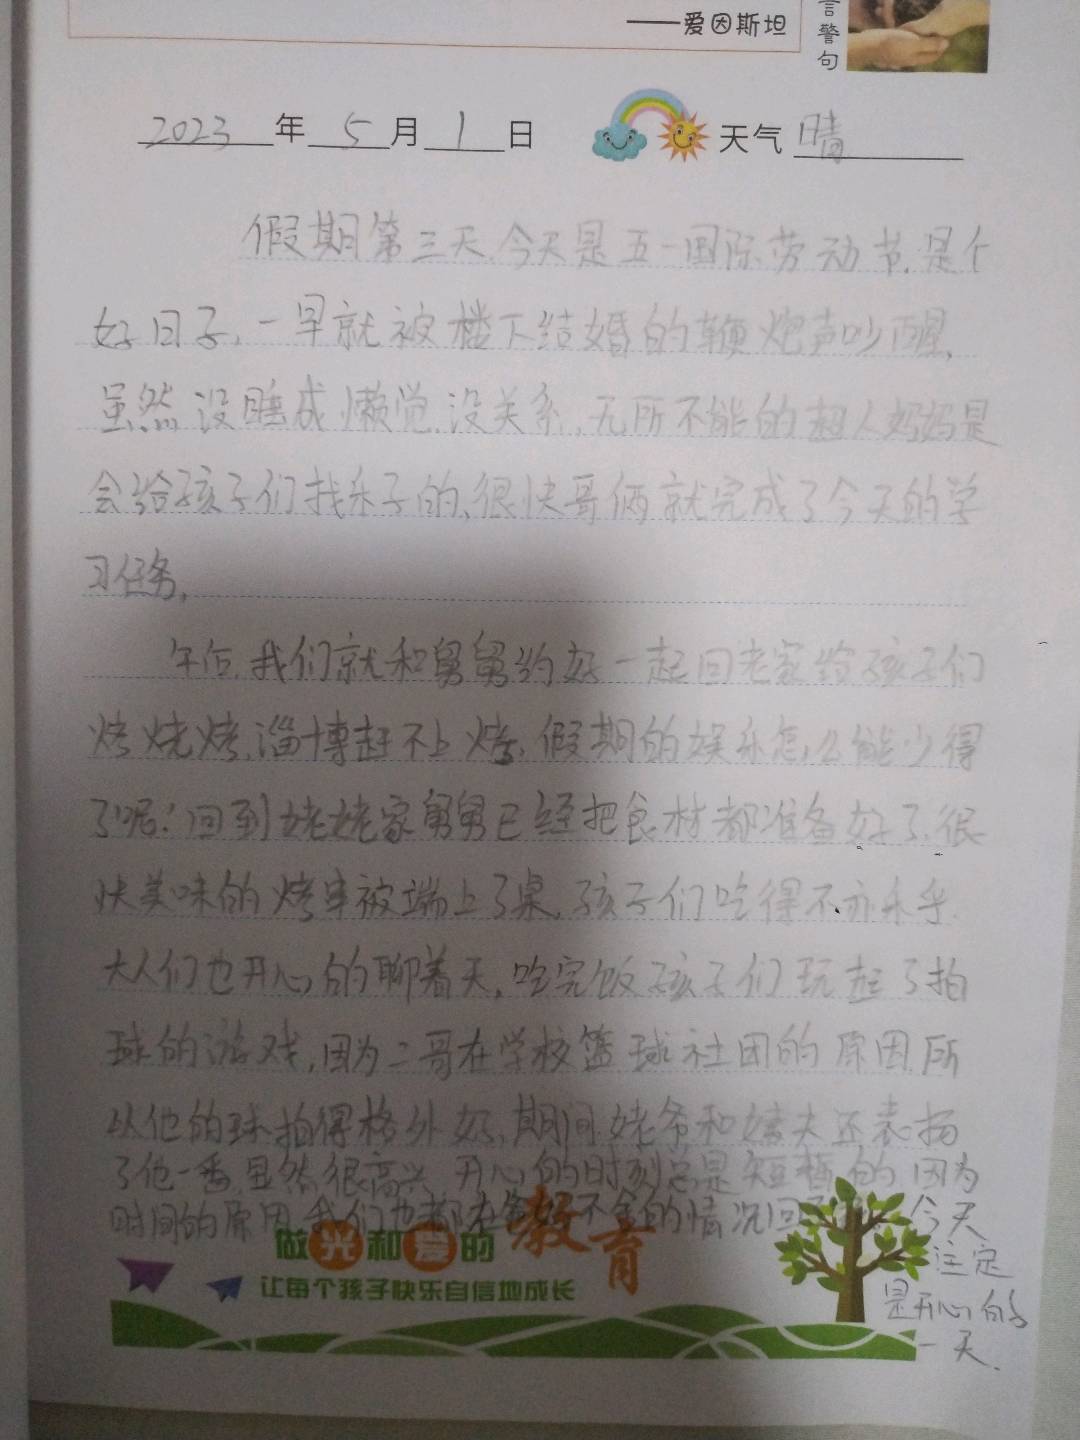 ——爱因斯坦
言警句
2023年5月1日 天气 晴
假期第三天.今天是五一国际劳动节.是个
好日子,一早就被楼下结婚的鞭炮声吵醒,
虽然没睡成懒觉.没关系,无所不能的超人妈妈是
会给孩子们找乐子的,很快哥俩就完成了今天的学
习任务,
午后,我们就和舅舅约好一起回老家给孩子们
烤烧烤,淄博赶不上烤,假期的娱乐怎么能少得
了呢!回到姥姥家舅舅已经把食材都准备好了.很
快美味的烤串被端上了桌,孩子们吃得不亦乐乎.
大人们也开心的聊着天,吃完饭孩子们玩起了拍
球的游戏,因为二哥在学校篮球社团的原因,所
以他的球拍得格外好,期间,姥爷和姨夫还表扬
了他一番,显然很高兴 开心的时刻总是短暂的 因为
时间的原因 我们也都 不舍的情况回 今天
注定
是开心的
一天.
做光和爱的教育
让每个孩子快乐自信地成长